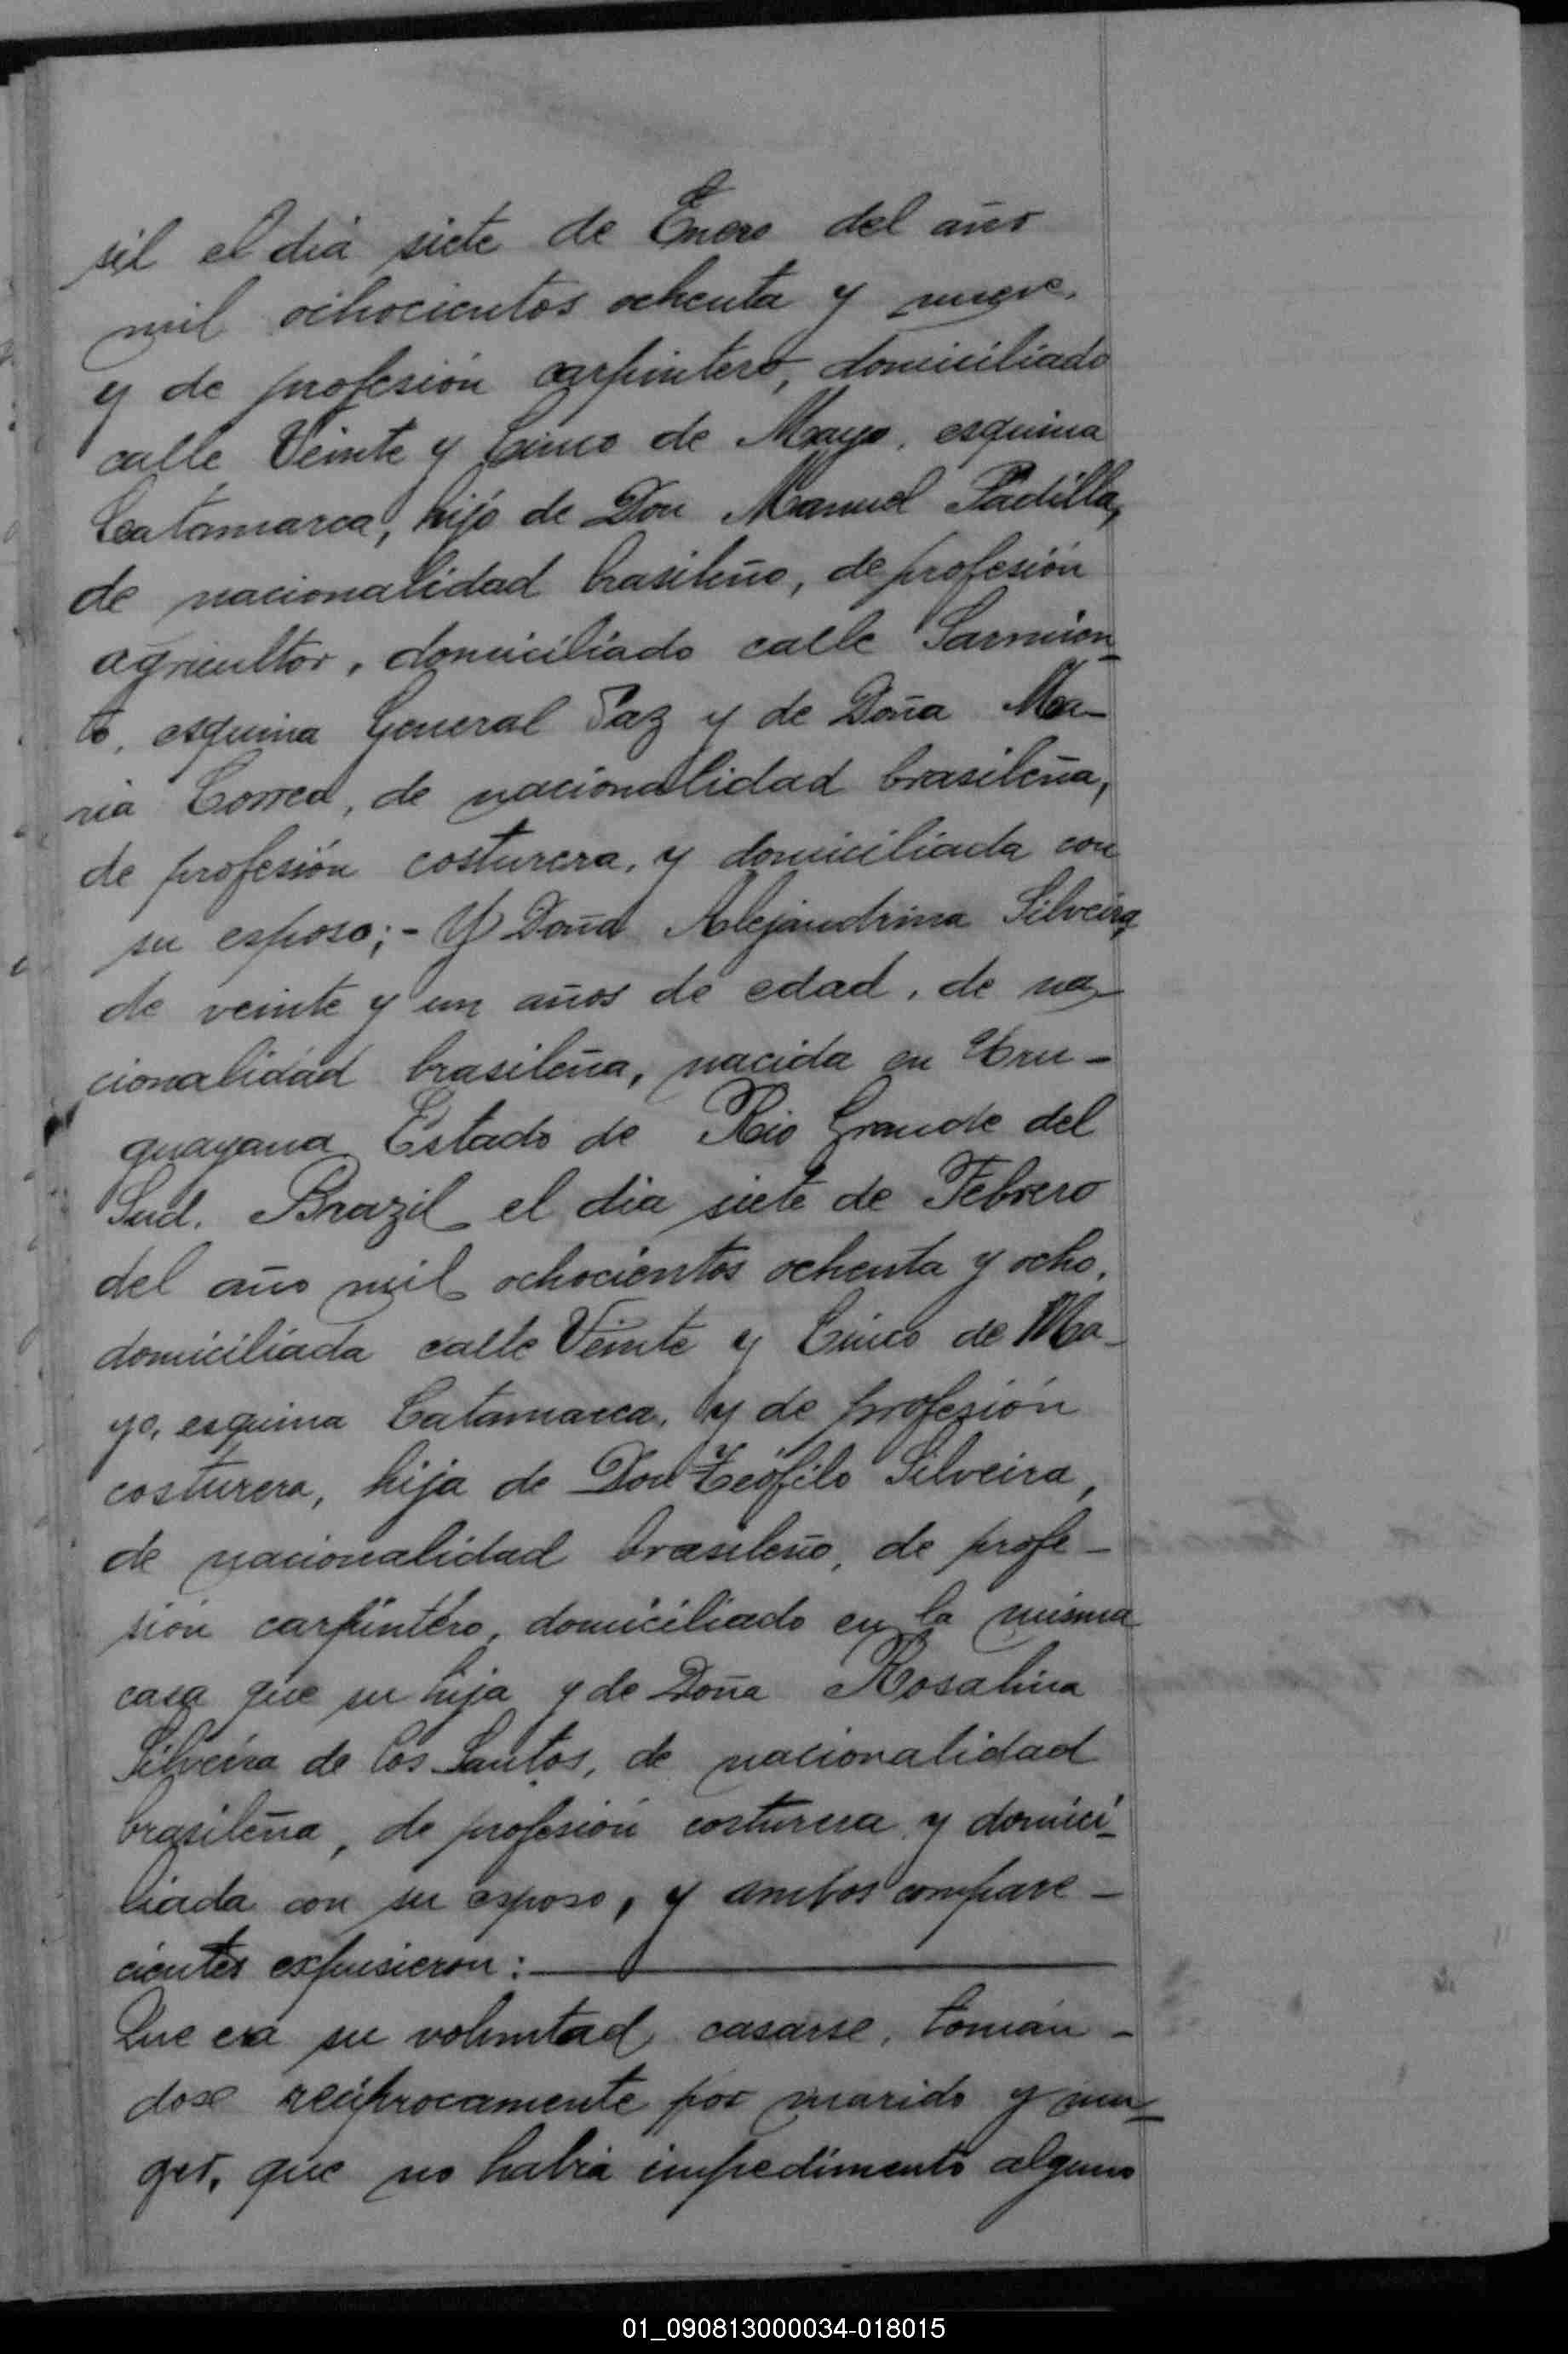 sil el dia siete de Enero del año
mil ochocientos ochenta y nueve,
y de profesión carpintero, domiciliado
calle Veinte y Cinco de Mayo, esquina
Catamarca, hijo de Don Manuel Padilla,
de nacionalidad brasileño, de profesión
agricultor, domiciliado calle Sarmien-
to, esquina General Paz y de Doña Ma-
ria Correa, de nacionalidad brasileña,
de profesión costurera, y domiciliada con
su esposo;- Y Doña Alejandrina Silveira,
de veinte y un años de edad, de na-
cionalidad brasileña, nacida en Uru-
guayana Estado de Rio Grande del
Sud. Brazil el dia siete de Febrero
del año mil ochocientos ochenta y ocho,
domiciliada calle Veinte y Cinco de Ma-
yo, esquina Catamarca, y de profesión
costurera, hija de Don Teófilo Silveira,
de nacionalidad brasileño, de profe-
sión carpintero, domiciliado en la misma
casa que su hija y de Doña Rosalina
Silveira de los Santos, de nacionalidad
brasileña, de profesión costurera y domici-
liada con su esposo, y ambos compare-
cientes expusieron:
Que era su voluntad casarse, tomán-
dose reciprocamente por marido y mu-
ger, que no habia impedimento alguno
01_090813000034-018015